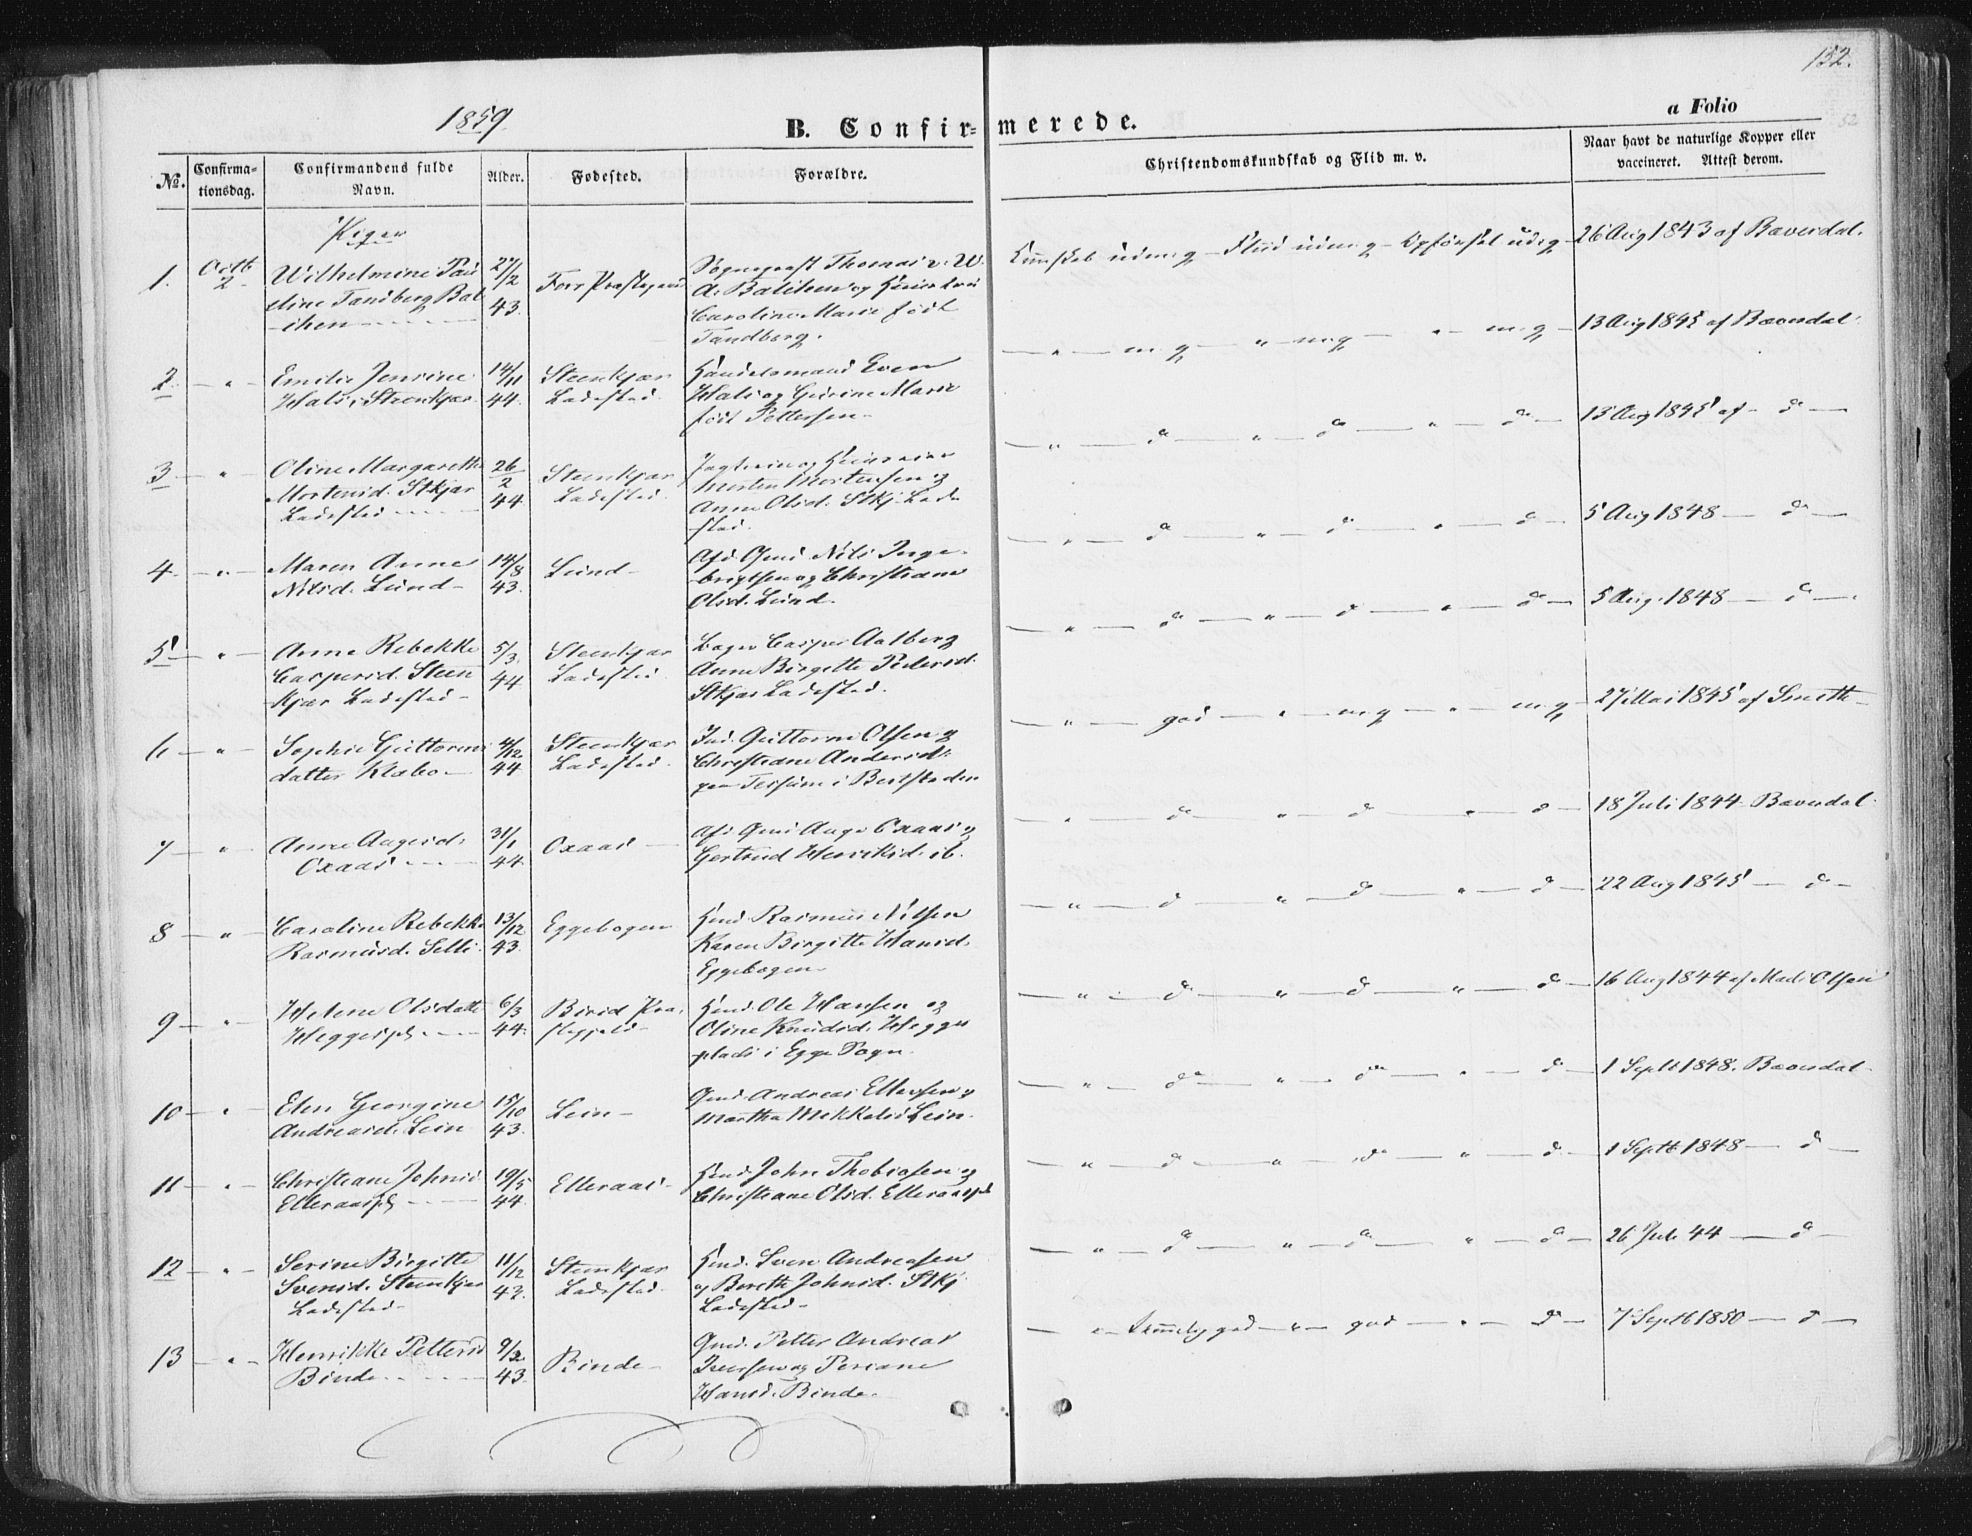 132.
1859
B. Confir-merede.
a Folio
52
No.
Confirma-
tionsdag.
Confirmandens fulde
Navn.
Alder.
Fødested.
Forældre.
Christendomskundskab og Flid m. v.
Naar havt de naturlige Kopper eller
vaccineret. Attest derom.
Piger
1. Octb 2 Wilhelmine Pau
eline Tandberg Bal
-chen
27/2 43.
Sogneprest Thomas v. W.
Caroline Marie født
Tandberg.
Kundskab udm. g - Fliid udm. g - Opførsel ud. g - 26 Aug 1843 af Baverdal.
2 - " - Emilie Jensine
Hals, Steenkjær
14/11 44.
Steenkjær
Ladested.
Handelsmand Even
Hals og Gurine Marie
født Pettersen
- " - m. g - " - m. g - " - m. g - 13 Aug 1845 af Baverdal.
3 - " - Oline Margarethe
Mortensd. Stkjær
Ladested
26/2 44
Steenkjær
Ladested.
Morten Mortensen og
Anne Olsd. Stkj. Lade
sted.
- " - do - " - do - " - do - 13 Aug 1845 af - do -
4 - " - Maren Anne
Nilsd. Lund -
14/8 43.
Lund -
Afd. Gmd. Nils Inge-
brigtsen og Christiane
Olsd. Lund.
- " - do - " - do - " - do - 5 Aug 1848 - do -
5 - " - Anne Rebekke
Caspersd. Steen
kjær Ladested -
5/3 44
Steenkjær
Ladested.
Casper Aalberg
Anne Birgitte Pedersd.
Stkjær Ladested.
- " - do - " - do - " - do - 5 Aug. 1848 - do -
6 - " - Sophie Guttorms
datter Klæbo -
4/12 44
Steenkjær
Ladested.
Ind. Guttorm Olsen og
Christiane Andersd.
- " - god - " - m. g - " - m. g - 27 Mai 1845 af Smith -
7 - " - Anne Aagesd.
Oxaas
31/1 44
Oxaas -
Afd. Gmd Aage Oxaas og
Gertrud Henriksd. ib.
- " - do - " - do - " - do - 18 Juli 1844 Baverdal
8 - " - Caroline Rebekke
Rasmusd. Selli
13/12 43.
Eggebogen
Hmd. Rasmus Nilsen
Karen Birgitte Hansd.
Eggebogen
- " - do - " - do - " - do - 22 Aug 1845 - do -
9 - " - Helene Olsdatte
Heggespl.
6/3 44.
Birid Præ-
stegjeld -
Hmd. Ole Hansen og
Oline Knudsd. Hegges
plads i Egge Sogn.
- " - do - " - do - " - do - 16 Aug 1844 af Mads Olsen
10 - " - Elen Georgine
Andreasd. Lein
15/10 43.
Lein -
Gmd. Andreas Ellevsen og
Martha Mikkelsd Lein.
- " - do - " - do - " - do - 1 Septb 1848. Baverdal
11 - " - Christiane Johnsd
Elleraaspl.
19/5 44.
Elleraas -
Hmd. John Thobiasen og
Christiane Olsd. Elleraaspl
- " - do - " - do - " - do - 1 Septb 1848 - do -
12 - " - Serine Birgitte
Svensd. Steenkjær
Ladested -
11/12 43.
Steenkjær
Ladested.
Hmd. Sven Andreasen
og Berethe Johnsd. Stkj.
Ladested -
- " - do - " - do - " - do - 26 Juli 44 - do -
13 - " - Henrikke Pettersd
Binde
9/2 43.
Binde -
Gmd. Petter Andreas
Iversen og Periane
Hansd. Binde.
- " - temmelig god - " - god - " - do - 7 Septb 1850 - do -